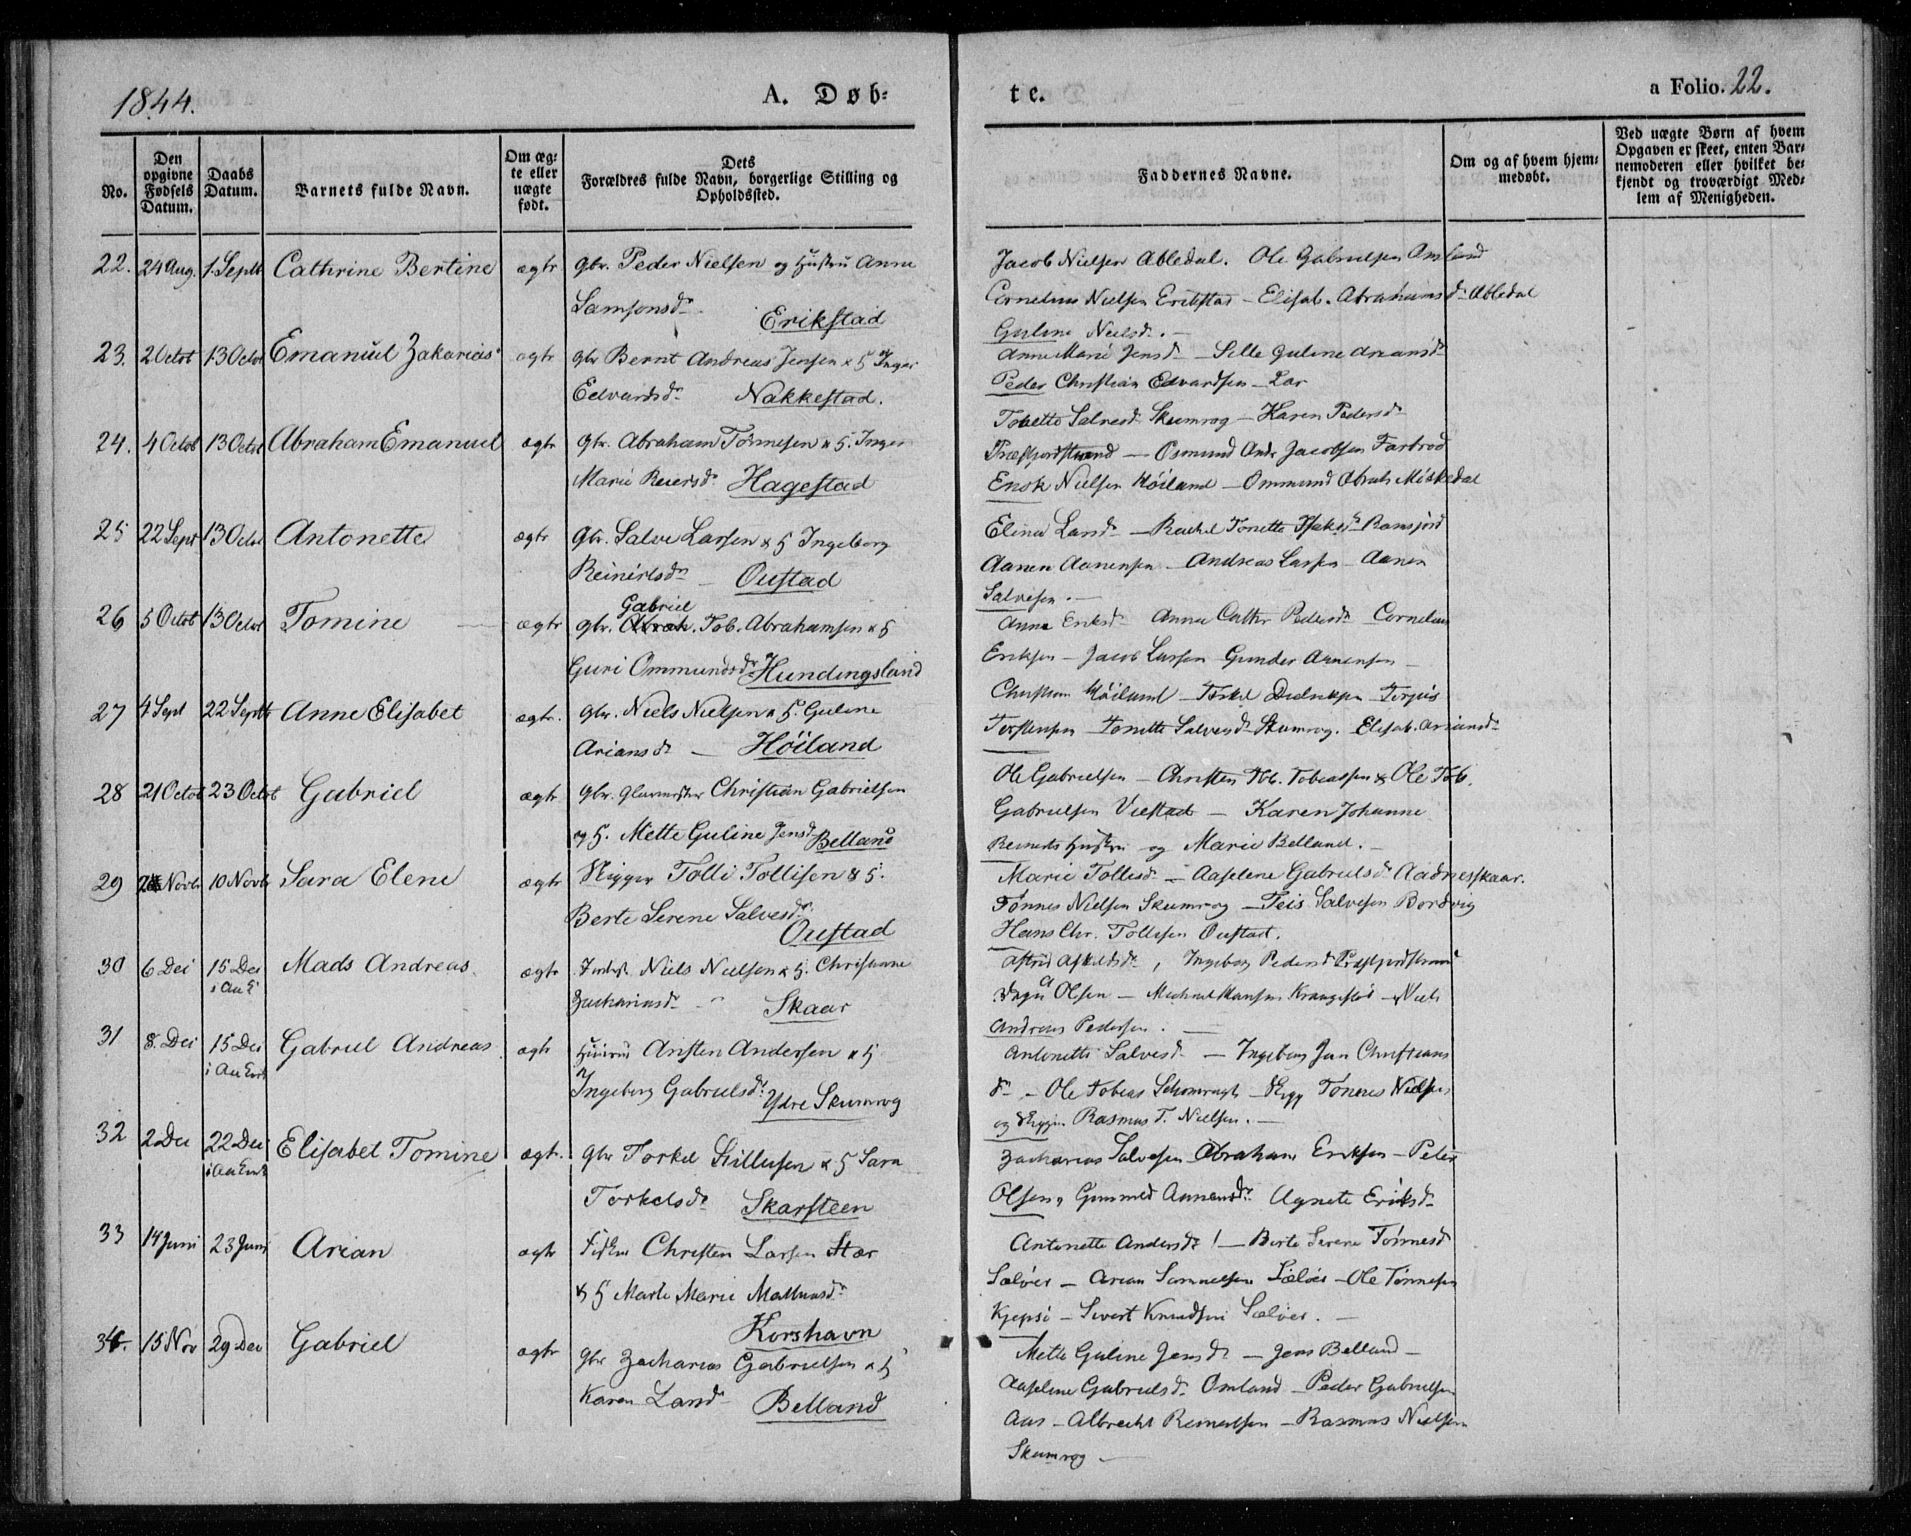 1844.
A. Døb-
te.
a Folio. 22.
No.
Den opgivne Fødsels Datum.
Daabs Datum.
Barnets fulde Navn.
Om ægte eller uægte født.
Dets Forældres fulde Navn, borgerlige Stilling og Opholdssted.
Faddernes Navne.
Om og af hvem hjemmedøbt.
Ved uægte Børn af hvem Opgaven er skeet, enten Barnemoderen eller hvilket bekjendt og troværdigt Medlem af Menigheden.
22. 24 Aug. 1. Septb Cathrine Bertine ægte gbr. Peder Nielsen og Hustru Anna
Samsonsdr. Erikstad
Jacob Nielsen Abledal. Ole Gabrielsen Omland
Cornelius Nielsen Erikstad - Elisab. Abrahamsd. Abledal
Guline Nielsdr. -
23. 2 Octob 13 Octob Emanuel Zakarias ægte gbr Bernt Andreas Jensen & H Inger
Edvardsdr. Nakkestad.
Anne Marie Jensdr - Sille Guline Ariansdr
Peder Christian Edvardsen - Lar
24. 4 Octob 13 Octob Abraham Emanuel ægte gbr. Abraham Tønnesen & H. Inger
Marie Reiersdr Hagestad
Tobette Salvesd Skumrog - Karen Pedersdr
Træfjordstrand - Osmund Andr Jacobsen Farbrod
Enok Nielsen Høiland - Ommund Abrah Miskedal
25 22 Sept 13 Octob Antonette ægte gbr. Salve Larsen & H Ingeborg
Reinertsdr - Oustad
Elena Larsdr - Rachel Tonette Isaksdr Ramsjord
Aanen Aanensen - Andreas Larsen - Aanen
Salvesen. -
26 5 Octob 13 Octob Tomine ægte gbr. Gabriel Tob. Abrahamsen & H
Guri Ommundsdr Hundingsland
Anna Eriksdr Anne Cathr Pedersdr Cornelius
Eriksen - Jacob Larsen Gunder Aanensen -
27 4 Sept 22 Septb Anne Elisabet ægte. gbr. Niels Nielsen & H. Guline
Ariansdr - Høiland
Christian Høiland - Torkel Didriksen - Torjus
Torstensen - Tonette Salvesdr Skumrog. Elisab. Ariansdr
28 21 Octob 23 Octob Gabriel ægte gbr. Glarmester Christian Gabrielsen
og H. Mette Guline Jensd Belland
Ole Gabrielsen - Christen Tob. Tobiassen & Ole Tob.
Gabrielsen Viestad - Karen Johanne
Reinerts Hustru og Marie Belland. -
29 Novb 10 Novb Sara Elene ægte Skipper Tolli Tollisen & H.
Berte Serene Salvesdr. Oustad
Marie Tollisdr - Aaselene Gabrielsdr Aadneskaar.
Tønnes Nielsen Skumrog - Teis Salvesen Bordvig
Hans Chr. Tollisen Oustad.
30 6 Dec 15 Dec i An K Mads Andreas ægte Niels Nielsen & H. Christiane
Zachariasdr - Skaar
Astrid Aslaksdr, Ingeborg Pedersd Træfjordstrand
Olsen - Michael Hansen - Niels
Andreas Pedersen. -
31 8. Dec 15 Dec Gabriel Andreas ægte Ansten Andersen & H
Ingeborg Gabrielsdr. Ydre Skumrog
Antonette Salvesd - Ingeborg Jan Christians
dr. - Ole Tobias - Skipp Tønnes Nielsen
og Skipper Rasmus T. Nielsen. -
32 2 Dec 22 Dec Elisabet Tomine ægte. gbr Torkel Sillesen & H Sara
Torkelsdr Skarsteen
Zacharias Salvesen Abraham Eriksen - Peter
Olsen, Gunnild Aanensdr. Agnete Eriksdr
33 14 Juni 23 Juni Arian ægte Fisker Christen Larsen Stær
& H Marte Marie Mathiasdr
Korshavn
Antonette Andersdr - Berte Serene Tønnesd
Sæløer - Arian Samuelsen Sæløer - Ole Tønnesen
Kjepsø - Sivert Knudsen Sæløer. -
34. 15 Nov 29 Dec Gabriel ægte gbr Zacharias Gabrielsen & H
Karen Larsdr Belland
Mette Guline Jensdr - Jens Belland -
Aaselene Gabrielsdr Omland - Peder Gabrielsen
Aas - Albrecht Reinertsen - Rasmus Nielsen
Skumrog -